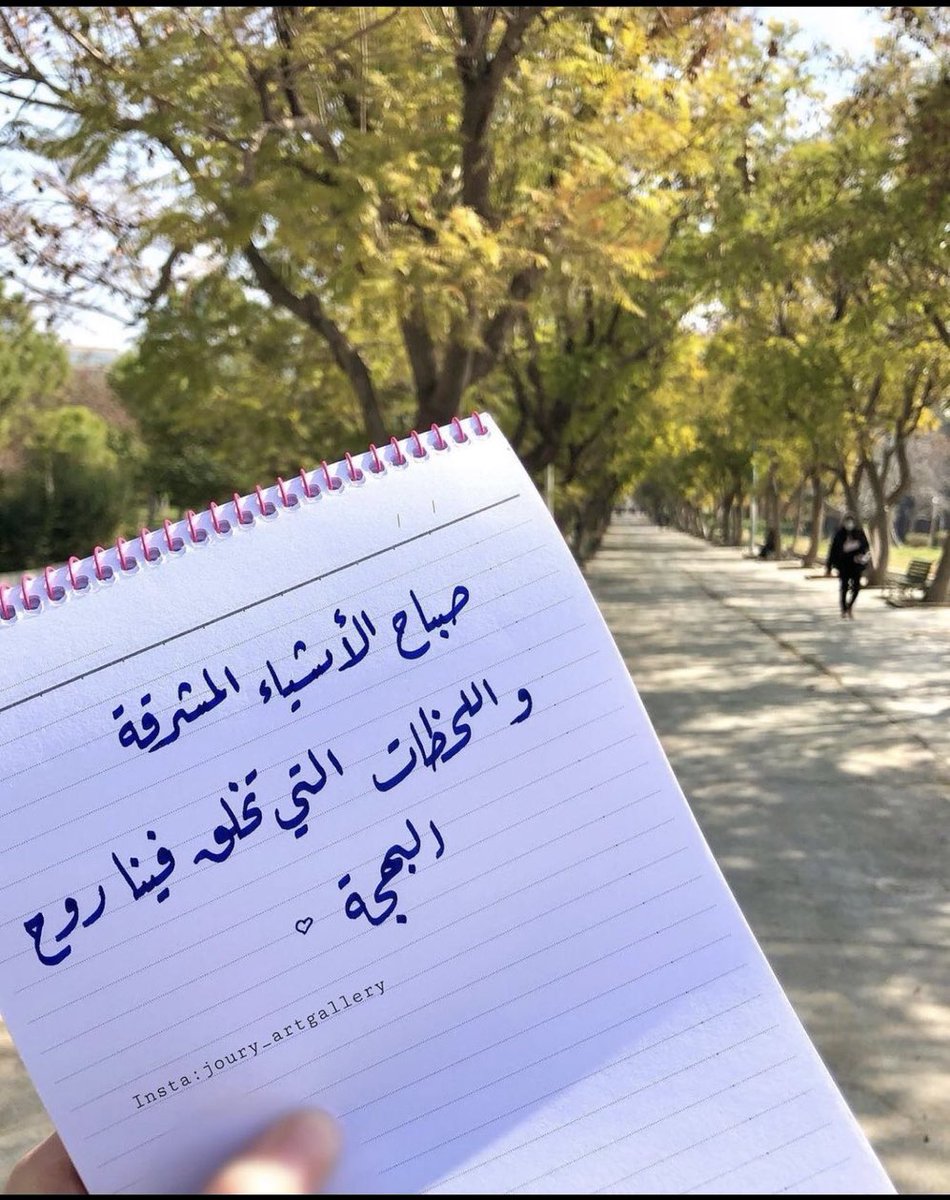 صباح الأشياء المشرقة
و اللحظات التي تخلق فينا روح
البهجة ♡
Insta:joury_artgallery